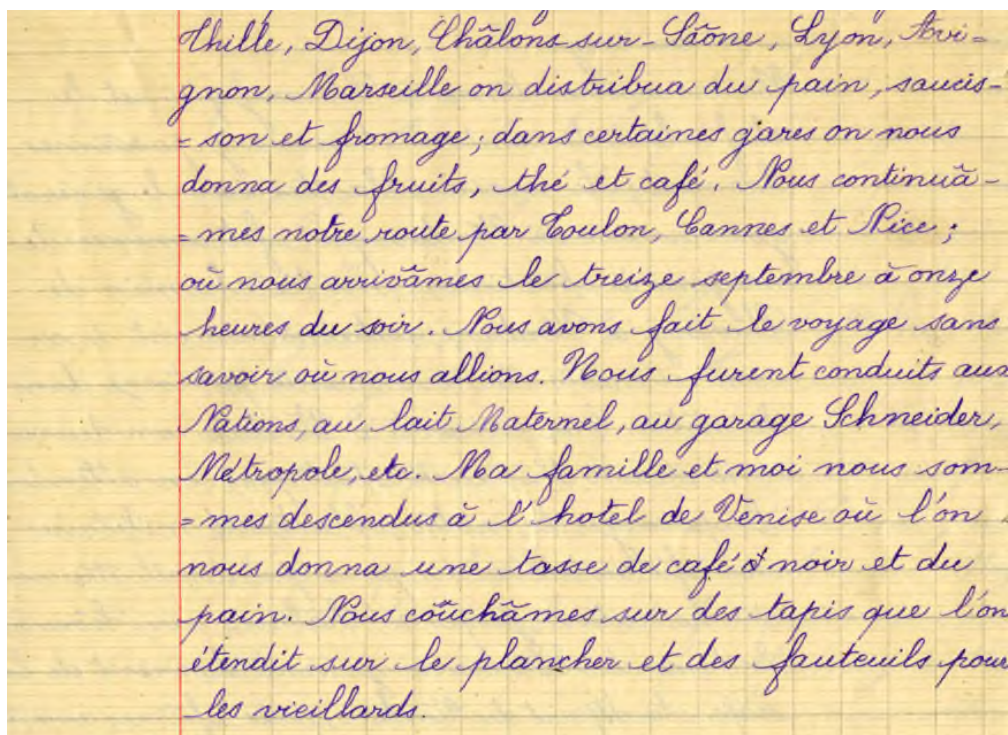 Thille, Dijon, Châlons-sur-Sâône, Lyon, Avi=
gnon, Marseille on distribua du pain, saucis-
=son et fromage ; dans certaines gares on nous
donna des fruits, thé et café. Nous continuâ-
=mes notre route par Toulon, Cannes et Nice ;
où nous arrivâmes le treize septembre à onze
heures du soir. Nous avons fait le voyage sans
savoir où nous allions. Nous furent conduits aux
Nations, au lait Maternel, au garage Schneider,
Métropole, etc. Ma famille et moi nous som-
=mes descendus à l'hotel de Venise où l'on
nous donna une tasse de café noir et du
pain. Nous coûchâmes sur des tapis que l'on
étendit sur le plancher et des fauteuils pour
les vieillards.